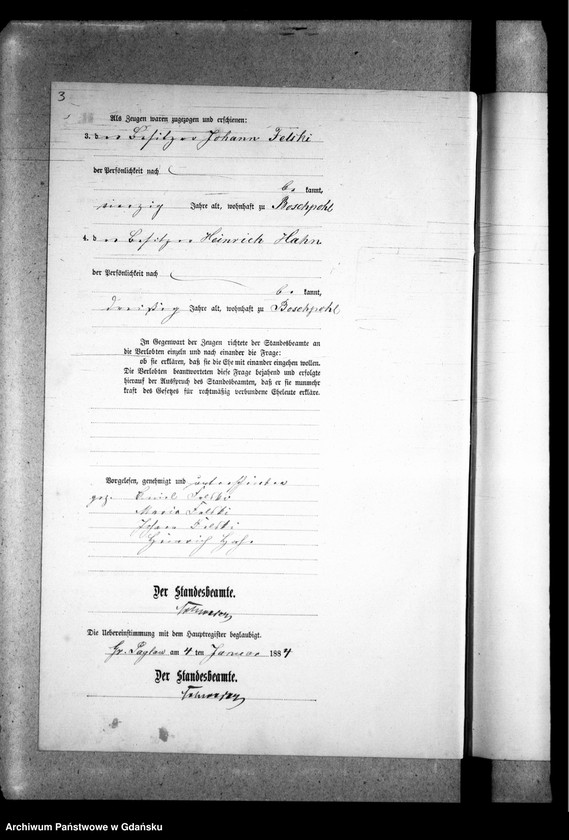 3
Als Zeugen waren zugezogen und erschienen:
3. der Besitzer Johann Felski
der Persönlichkeit nach
be kannt,
vierzig Jahre alt, wohnhaft zu Boschpohl
4. der Besitzer Heinrich Hahn
der Persönlichkeit nach
be kannt,
dreißig Jahre alt, wohnhaft zu Boschpohl
In Gegenwart der Zeugen richtete der Standesbeamte an
die Verlobten einzeln und nach einander die Frage:
ob sie erklären, daß sie die Ehe mit einander eingehen wollen.
Die Verlobten beantworteten diese Frage bejahend und erfolgte
hierauf der Ausspruch des Standesbeamten, daß er sie nunmehr
kraft des Gesetzes für rechtmäßig verbundene Eheleute erkläre.
Vorgelesen, genehmigt und unterschrieben
gez.
Maria Felski
Johann Felski
Heinrich Hahn
Der Standesbeamte.
Die Uebereinstimmung mit dem Hauptregister beglaubigt.
Gr. Paglau am 4 ten Januar 1884
Der Standesbeamte.
Archiwum Państwowe w Gdańsku